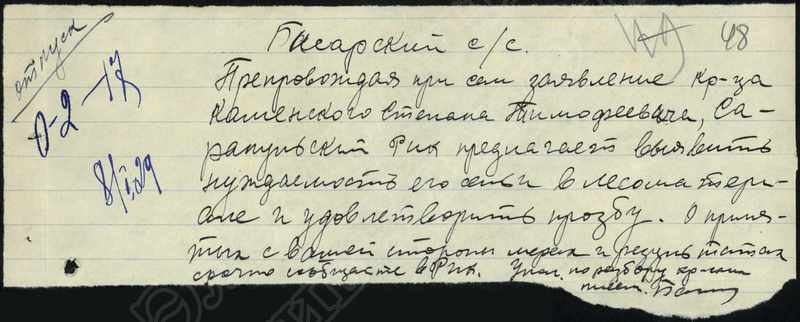 отпуск
0-2-17
8/I.29
48
Гисарский с/с.
Препровождая при сем заявление кр-ца
Каменского Степана Тимофеевича, Са-
рапульский Рик предлагает выявить
нуждаемость его семьи в лесоматери-
але и удовлетворить прозбу. О приня-
тых с вашей стороны мерах и результатах
срочно сообщите в Рик. Упол. по разбору кр-ских
писем.